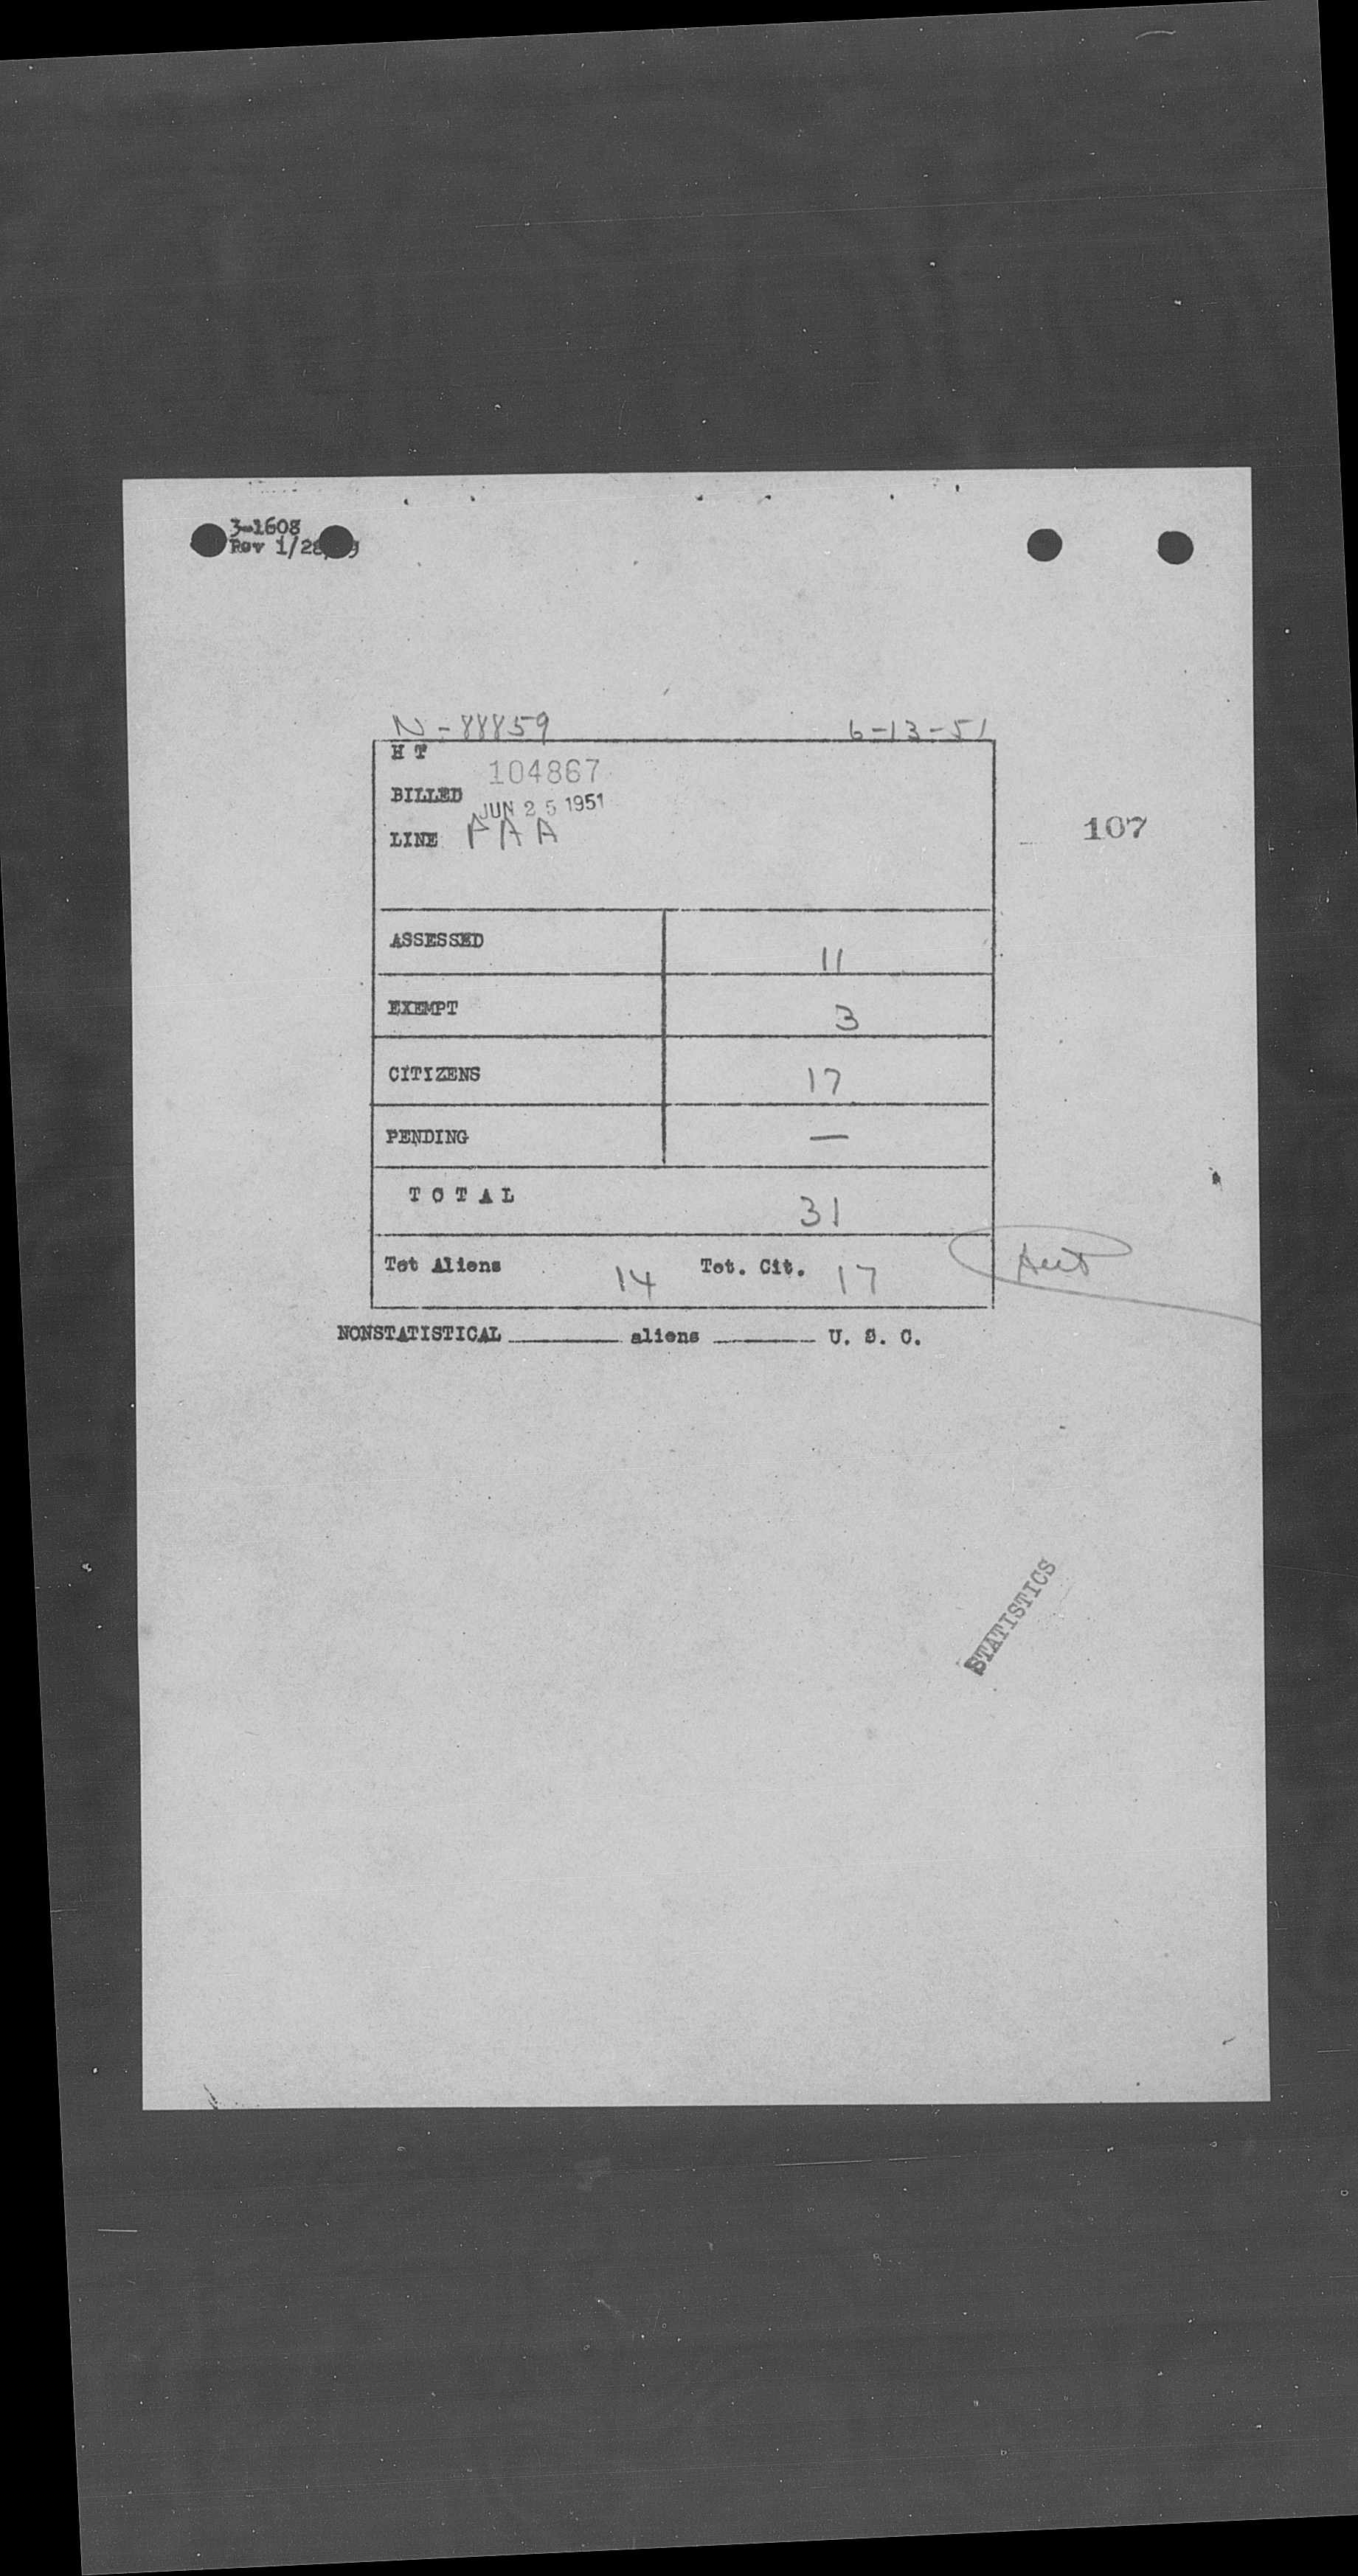 3-1608
Rev 1/28
N-88859 6-13-51
H T
104867
BILLED
JUN 25 1951
LINE PAA
107
ASSESSED 11
EXEMPT 3
CITIZENS 17
PENDING —
TOTAL 31
Tot Aliens 14 Tot. Cit. 17
NONSTATISTICAL ________ aliens ________ U. S. C.
STATISTICS